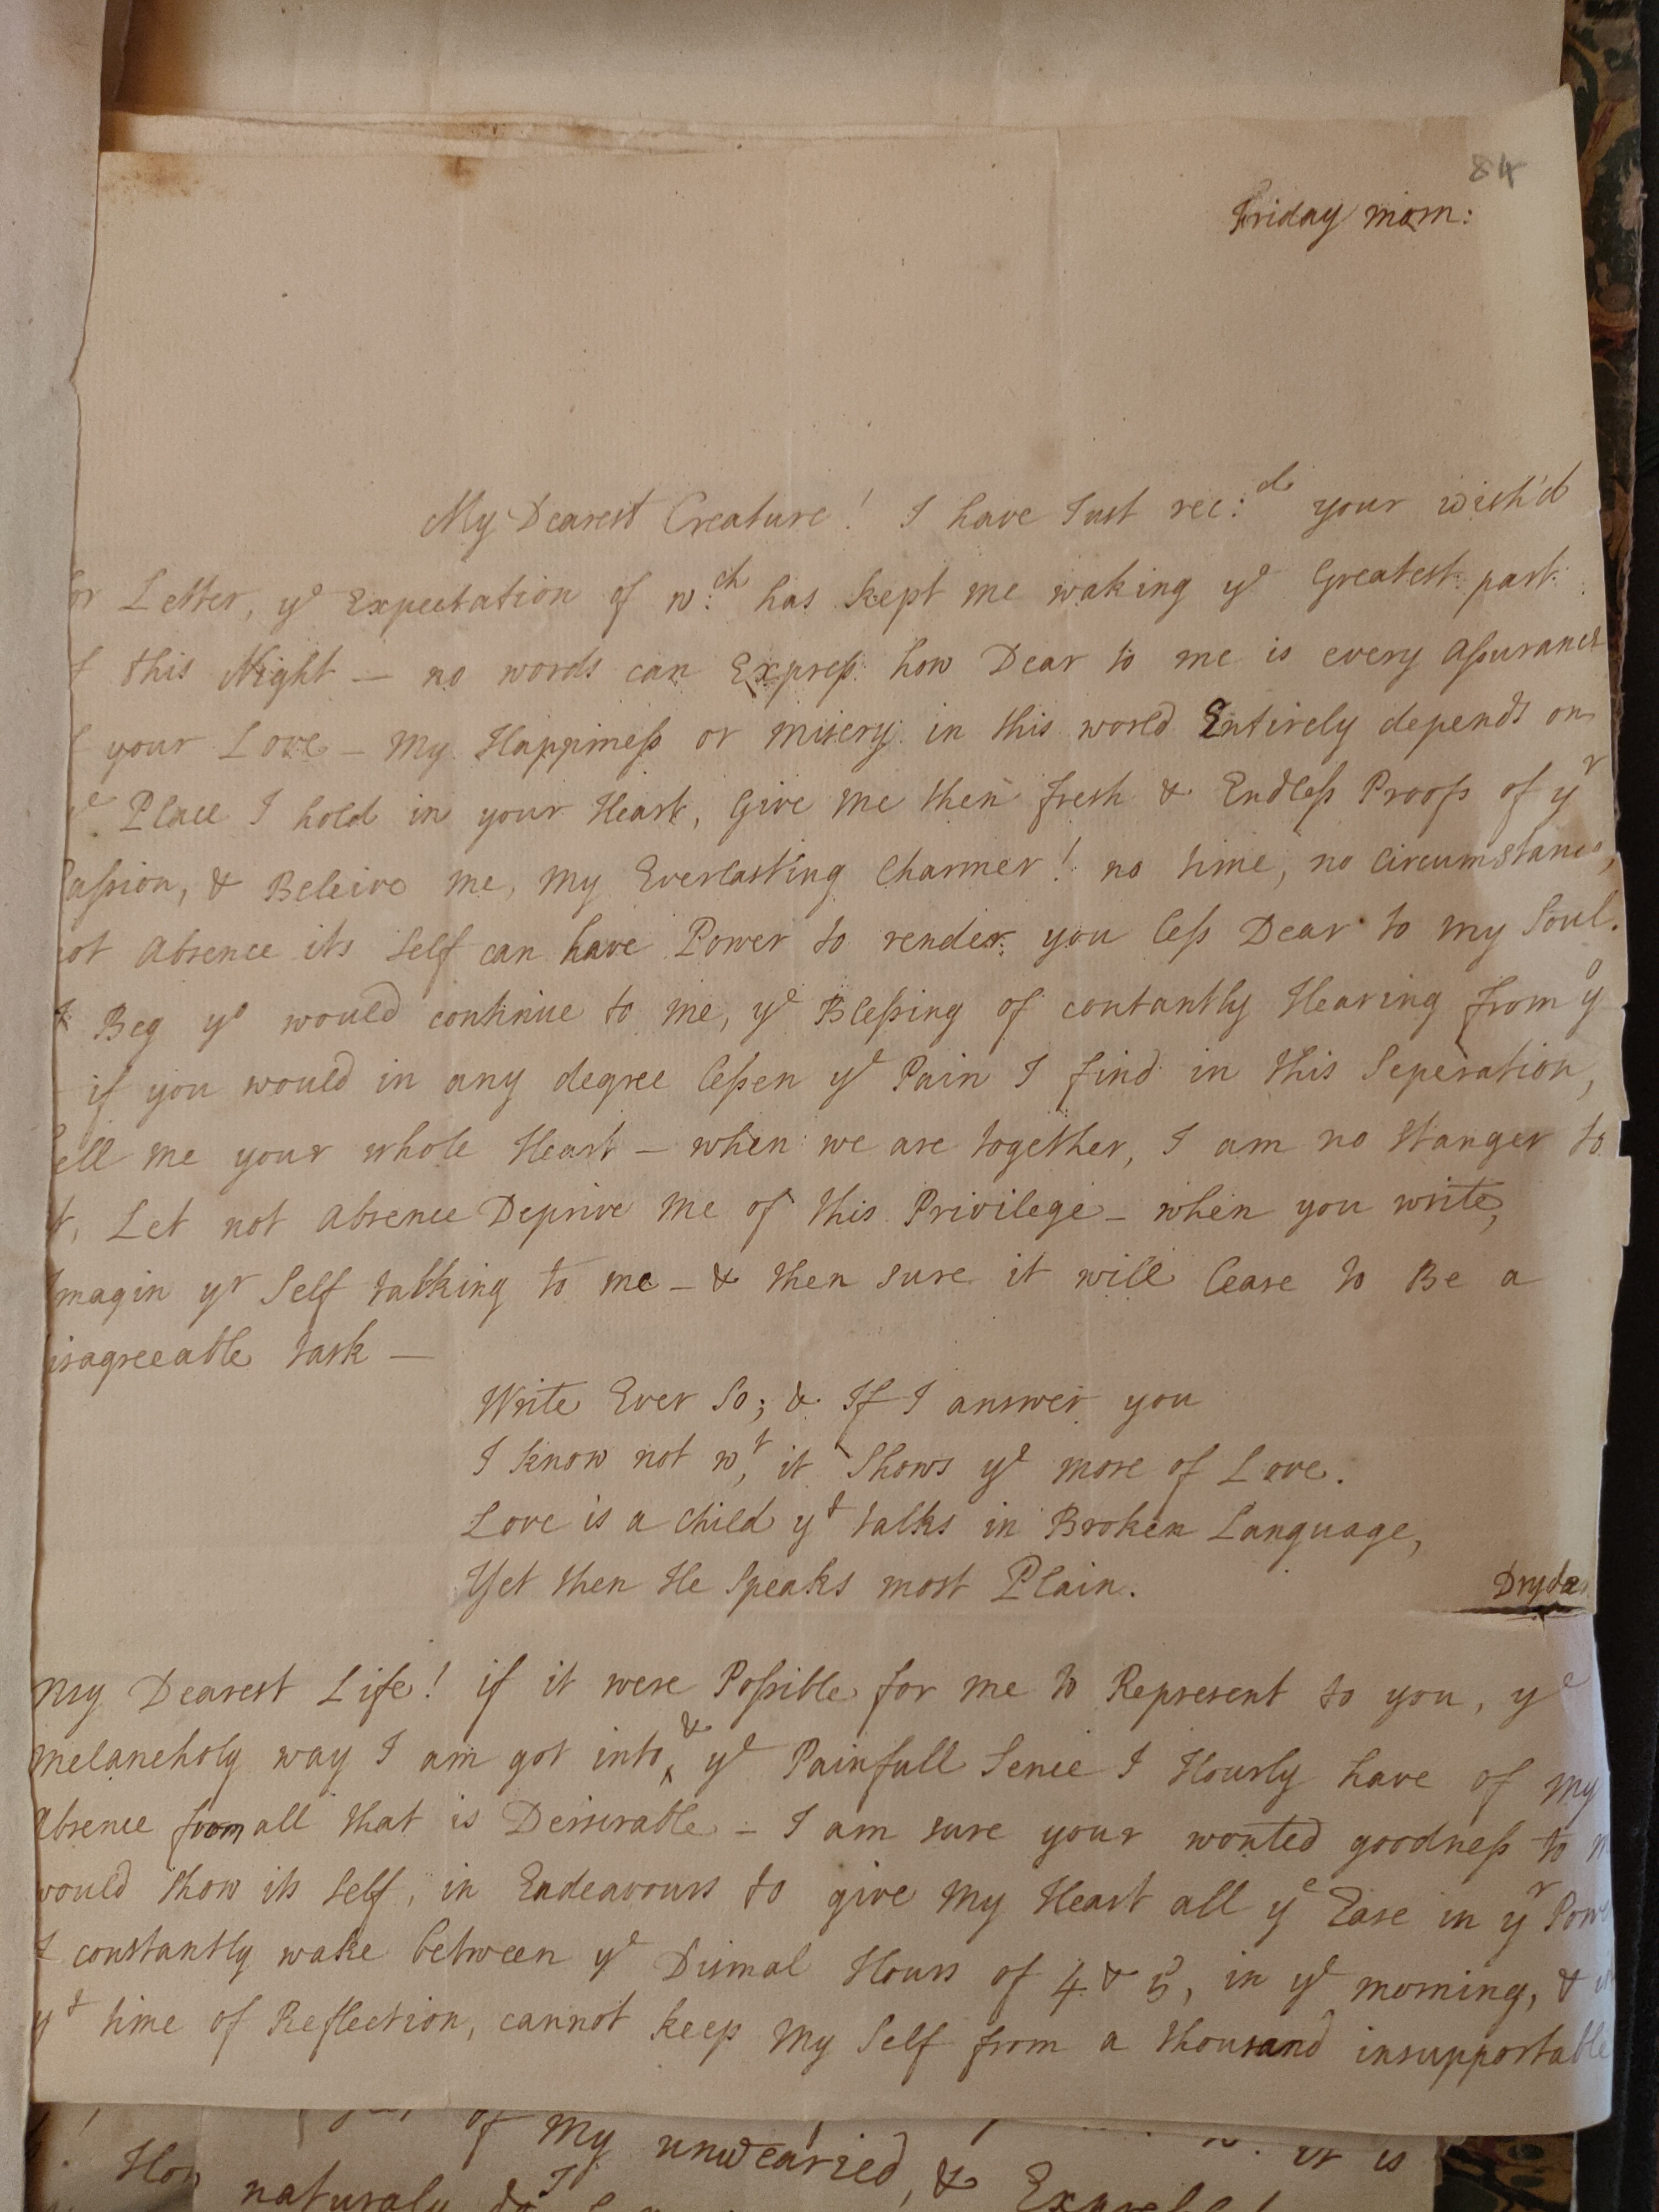 84
Friday morn:
My Dearest Creature! I have Just rec:d your wish'd
or Letter, ye Expectation of w:ch has kept me waking ye Greatest part
f this Night — no words can Express how Dear to me is every assurance
f your Love — My Happiness or misery in this world Entirely depends on
ye Place I hold in your Heart, Give me then fresh & Endless Proofs of yr
assion, & Beleive me, my Everlasting Charmer! no time, no Circumstance,
not Absence its Self can have Power to render you less Dear to my Soul.
I Beg yo would continue to me, ye Blessing of contantly Hearing from yo
if you would in any degree lessen ye Pain I find in this Seperation,
ell me your whole Heart — when we are together, I am no Stanger to
t, Let not Absence Deprive me of this Privilege — when you write,
magin yr Self talking to me — & then sure it will Cease to Be a
isagreeable task —
Write Ever So; & If I answer you
I know not wt, it Shows ye more of Love.
Love is a Child yt talks in Broken Language,
Yet then He Speaks most Plain.
Dryden
My Dearest Life! if it were Possible for me to Represent to you, ye
melancholy way I am got into, & ye Painfull Sence I Hourly have of my
Absence from all that is Desirable — I am sure your wonted goodness to
would Show its Self, in Endeavours to give My Heart all ye Ease in yr Powe
I constantly wake between ye Dismal Hours of 4 & 5, in ye morning, &
yt time of Reflection, cannot keep my Self from a thousand insupportable
of My unwearied, & it is
How naturaly do I Express